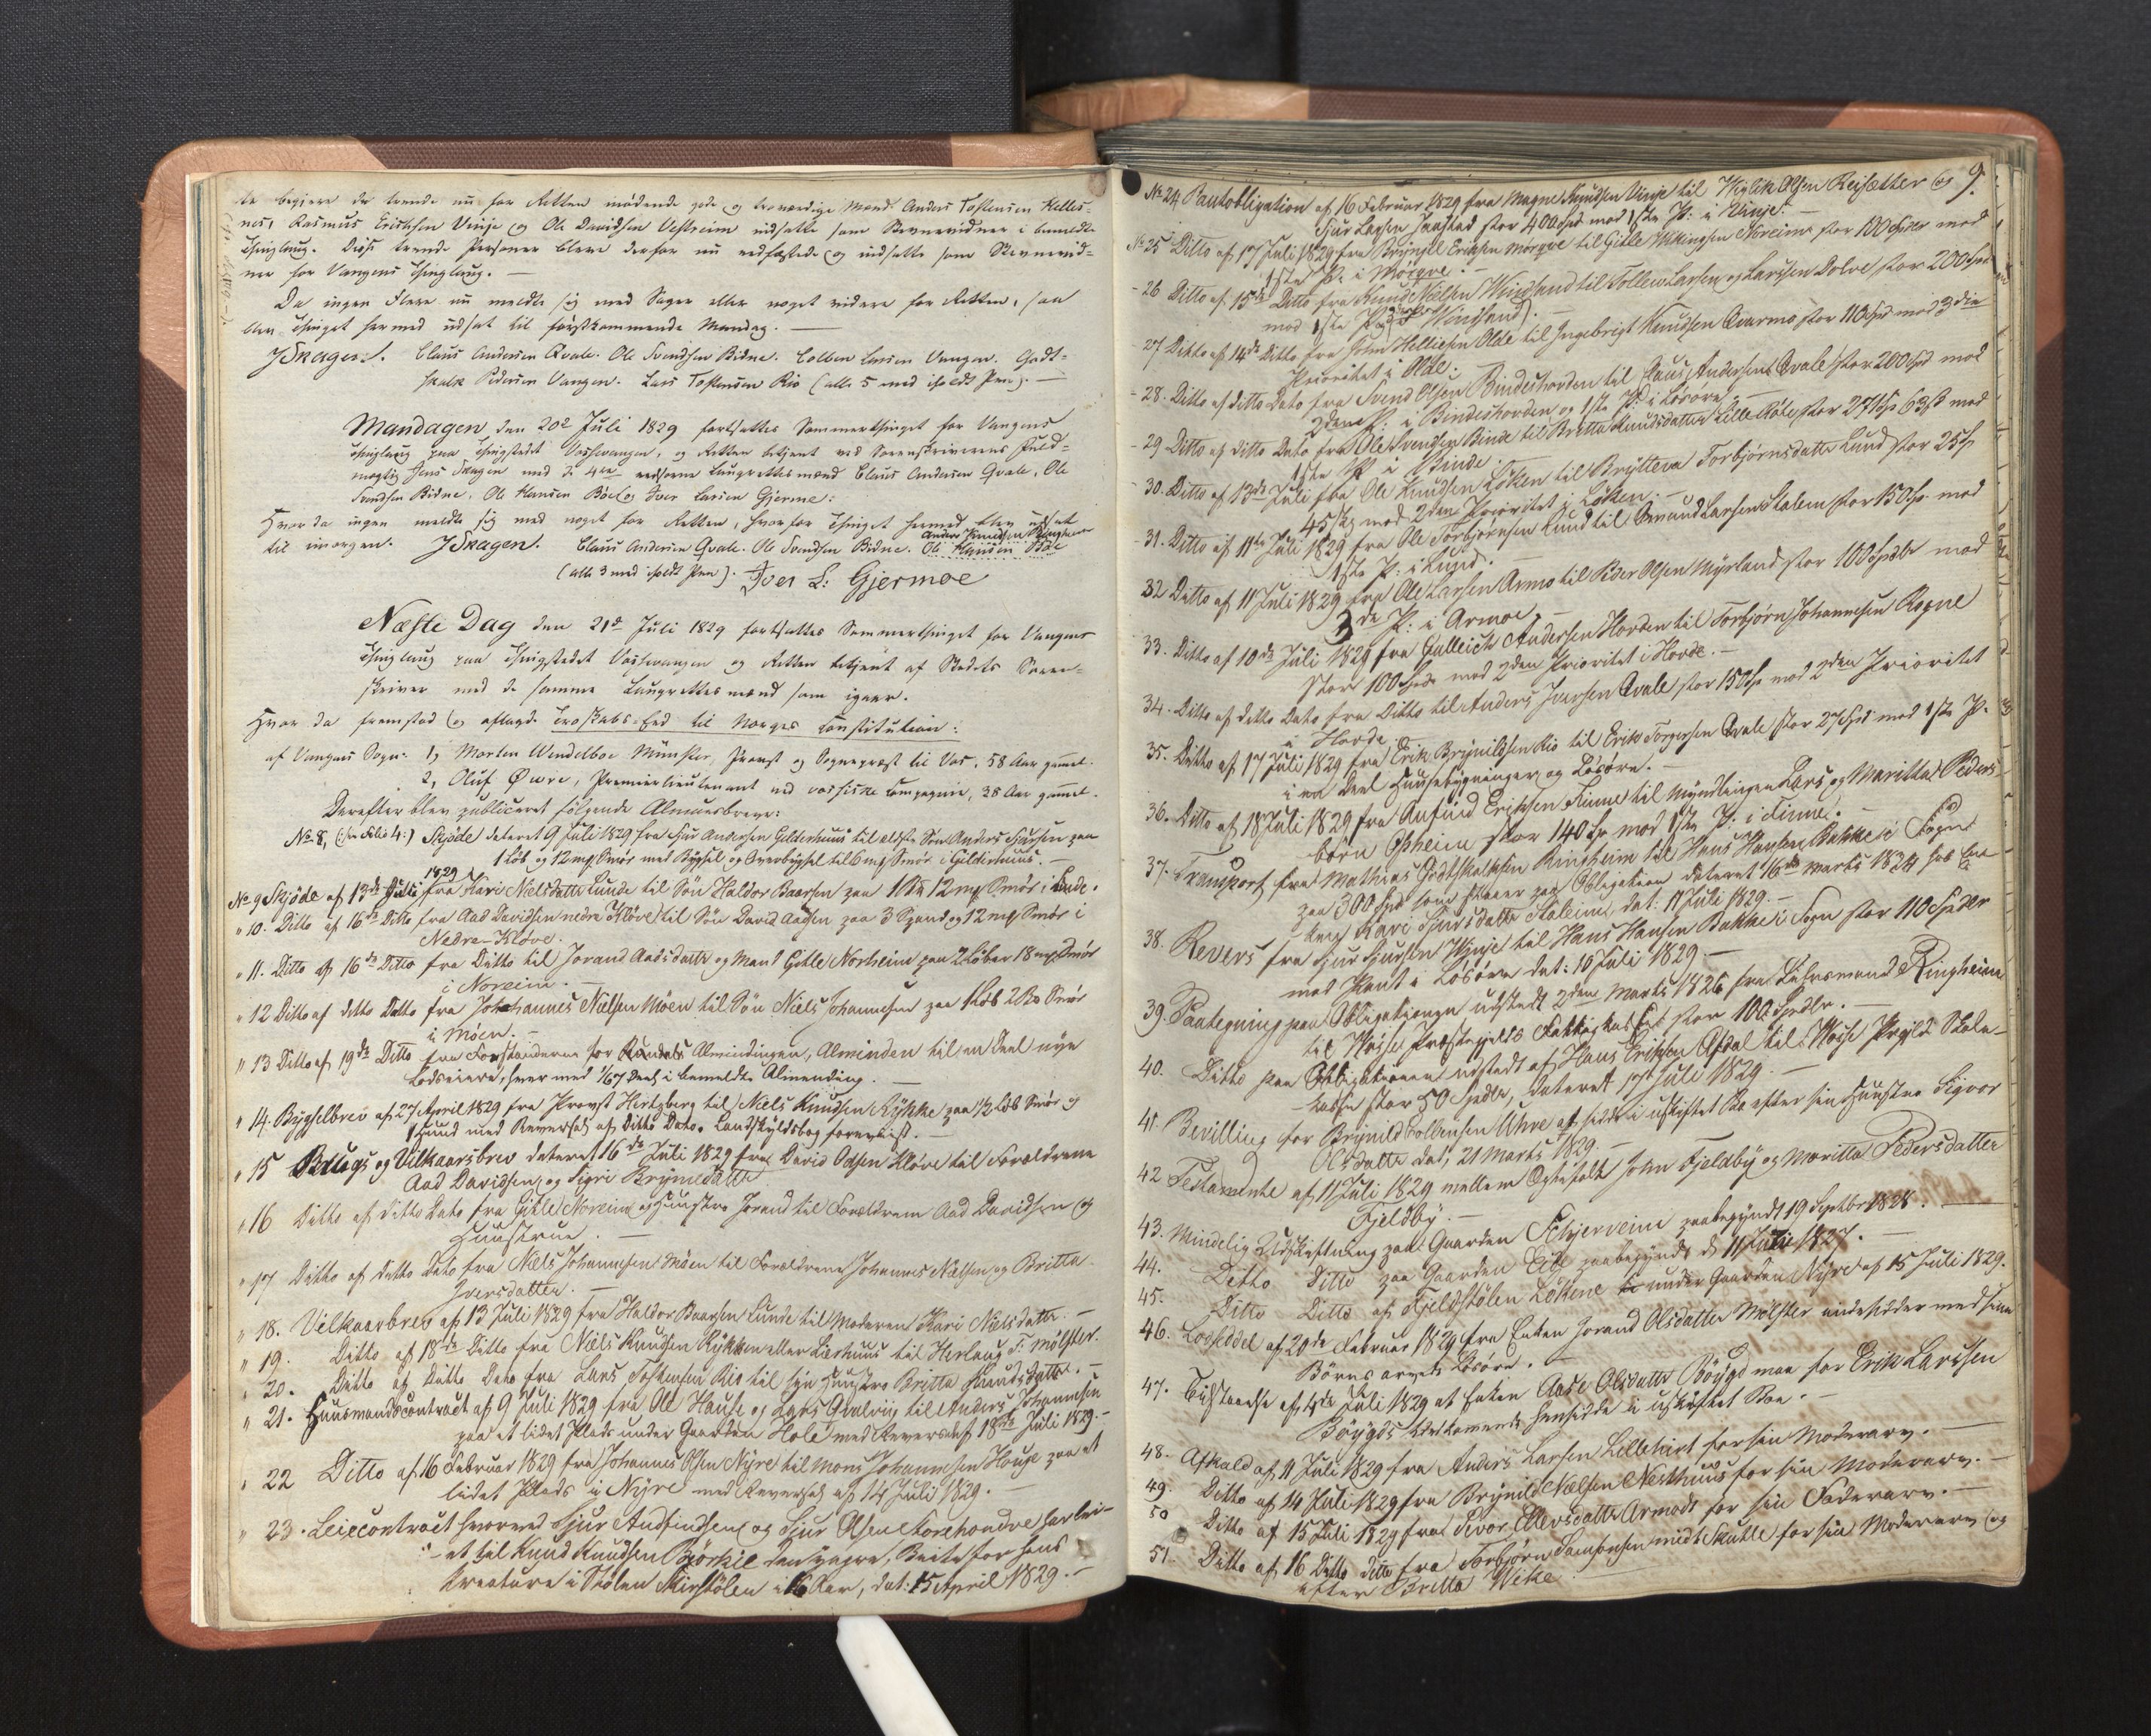 te begjere de tvende nu for Retten mødende gode og troværdige Mænd Anders Tostensen Helles-
nes, Rasmus Erichsen Vinje og Ole Davidsen Vestreim indsatte som Stevnevidner i bemeldte
Thinglaug. Disse tvende Personer bleve derfor nu edfæstede og indsatte som Stevnevid-
ner for Vangens Thinglaug. —
Da ingen Flere nu meldte sig med Sager eller noget videre for Retten, saa
blev Thinget hermed udsat til førstkommende Mandag. —
JSkagen. Claus Andersen Qvale. Ole Svendsen Bidne. Colben Larsen Vangen. Godt-
skalk Pedersen Vangen. Lars Tostensen Rio (alle 5 med iholdt Pen). —
Mandagen den 20de Juli 1829 fortsattes Sommerthinget for Vangens
Thinglaug paa Thingstedet Vossevangen, og Retten betjent ved Sorenskriverens Fuld-
mægtig Jens Skagen med de 4re edsorne Laugrettesmænd Claus Andersen Qvale, Ole
Svendsen Bidne, Ole Hansen Bøe og Iver Larsen Gjerme:
Hvor da ingen meldte sig med noget for Retten, hvorfor Thinget hermed blev udsat
til imorgen. JSkagen. Claus Andersen Qvale. Ole Svendsen Bidne. Ole Hansen Bøe
Anders Knudsen
(alle 3 med iholdt Pen). Iver L: Gjermoe
Næste Dag den 21de Juli 1829 fortsattes Sommerthinget for Vangens
Thinglaug paa Thingstedet Vossevangen og Retten betjent af Stedets Soren-
skriver med de samme Laugrettesmænd som igaar.
Hvor da fremstod og aflagde Troskabs-Eed til Norges Constitution:
af Vangens Sogn: 1, Morten Wendelboe Münster, Provst og Sognepræst til Vos, 58 Aar gammel.
2, Oluf Øwre, Premierlieutenant ved vossiske Compagnie, 38 Aar gammel.
Derefter blev publiceret følgende Almuesbreve:
No 8, (see Folio 4:) Skjøde dateret 9 Juli 1829 fra Sjur Andersen Gilderhuus til ældste Søn Anders Sjursen paa
1 Løb og 12 mk Smør med Bygsel og Overbygsel til 6 mk Smør i Gilderhuus. —
No 9 Skjøde af 13de Juli 1829 fra Kari Nielsdatter Lunde til Søn Haldor Baarsen paa 12 mk Smør i Lunde.
" 10. Ditto af 16de Ditto fra Aad Davidsen nedre Kløve til Søn David Aadsen paa 3 Spand og 12 mk Smør i
Nedre-Kløve.
" 11. Ditto af 16de Ditto fra Ditto til Jorand Aadsdatter og Mand Gitle Norheim paa 2 Løber 18 mk Smør
i Noreim.
" 12 Ditto af ditto Datto fra Johannes Nielsen Møen til Søn Niels Johannesen paa 1 Løb 2 Smør
i Møen. —
" 13 Ditto af 19de Ditto fra Forstanderne for Almindingen, Alminden til en Deel nye
Lodseiere, hver med 1/67 Deel i bemeldte Alminding. —
" 14. Bygselbrev af 27 April 1829 fra Provst Hertzberg til Niels Knudsen Rykke paa 1/2 Løb Smør og
1 Hund med Revers af Ditto Dato. Landskyldsbog foreviist. —
" 15 og Vilkaarsbrev dateret 16de Juli 1829 fra David Odsen Kløve til Forældrene
Aad Davidsen og Sigri Brynildsdatter
" 16 Ditto af Ditto Dato fra Gitle Noreim og Hustru Jorand til Forældrene Aad Davidsen og
Huustrue. —
" 17 Ditto af Ditto Dato fra Niels Johannesen Møen til Forældrene Johannes Nielsen og Britta
Iversdatter. —
" 18. Vilkaarbrev af 13 Juli 1829 fra Haldor Baarsen Lunde til Moderen Kari Nielsdatter. —
" 19. Ditto af 18de Ditto fra Niels Knudsen Rykken eller Lærhuus til Herlaug T. Mølster.
" 20. Ditto af Ditto Dato fra Lars Tostensen Rio til sin Huustro Britta Knudsdatter. —
" 21. Huusmandscontract af 9 Juli 1829 fra Ole Haufe og Lars til Anders Johannesen
paa et lidet Plads under Gaarden Hole med Revers af 18de Juli 1829. —
" 22 Ditto af 16 Februar 1829 fra Johannes Olsen Nyre til Mons Johannesen Houge paa et
lidet Plads i Nyre med Revers af 14 Juli 1829. —
" 23. Leiecontract hvorved Sjur Andfindsen og Sjur Olsen have lei-
et til Knud Knudsen Bjørkie Beite for hans
Kreature i Stølen i 16 Aar, dat: 15 April 1829. —
9.
No 24 Pantobligation af 16 Februar 1829 fra Magne Knudsen Vinje til Wiglik Olsen Reisetter og
Sjur Larsen Saustad stor 400 Spd med 1ste P: i Vinje. —
No 25 Ditto af 17 Juli 1829 fra Brynjel Eriksen Mørqve til Gitle Wikingsen Noreim stor 100 Spdr med
1ste P: i Mørqve. —
- 26 Ditto af 15de Ditto fra Knud Nielsen Windsand til Tollew Larsen og Larssen Dolve stor 200 Spd
med 1ste P: i Windsand. —
- 27 Ditto af 14de Ditto fra John Helliesen Olde til Ingebrigt Knudsen Qvarme stor 110 Spd med 3die
Prioritet i Olde.
- 28. Ditto af ditto Dato fra Svend Olsen Bindeshorden til Claus Andersen Qvale stor 200 Spd med
2den P: i Bindeshorden og 1ste P: i Løsøre. —
- 29 Ditto af ditto Dato fra Ole Svendsen Binde til Britta Knudsdatter Lille Røte stor 271 Sp 63 s med
1ste P: i Binde. —
- 30. Ditto af 13de Juli fra Ole Knudsen Løken til Brytteva Torbjørnsdatter Lund stor 25 Sp
45 s med 2den Prioritet i Løken. —
31. Ditto af 11te Juli 1829 fra Ole Torbjørnsen Lund til Amund Larsen Stalem stor 150 Sp med
1ste P: i Lund. —
32 Ditto af 11 Juli 1829 fra Ole Larsen Armo til Peder Olsen Myrland stor 100 Spdlr med
3de P: i Armoe. —
33. Ditto af 10de Juli 1829 fra Gulleich Andersen Horden til Torbjørn Johannesen Rogne
stor 100 Spd med 2den Prioritet i Horde. —
34. Ditto af ditto Dato fra Ditto til Anders Iversen Qvale stor 150 Sp med 2den Prioritet
i Horde.
35. Ditto af 17 Juli 1829 fra Erik Brynildsen Rio til Erik Torgersen Qvale stor 27 Spd med 1ste P.
i en Deel Huusebygninger og Løsøre. —
36. Ditto af 18 Juli 1829 fra Anfind Eriksen Finne til Myndlingen Lars og Maritta Peders
børn Opheim stor 140 Sp med 1ste P: i Finne. —
37. Transport fra Mathias Godtskalksen Ringheim til Hans Hansen Bakke i Sogn
paa 300 Spd som staaer paa Obligation dateret 16de Marts 1824 hos En-
ken Kari Sjursdatter Staleim, dat: 17 Juli 1829. —
38. Revers fra Sjur Sjursen Winje til Hans Hansen Bakke i Sogn stor 110 Spdlr
med Pant i Løsøre dat: 10 Juli 1829. —
39. Paategning paa Obligationen udstedt 2den Marts 1826 fra Lehnsmand Ringheim
til Wosse Præstegjelds Fattigkasse stor 100 Spdlr. —
40. Ditto paa Obligationen udstedt af Hans Eriksen Afdal til Wosse Prgjlds Skole-
kasse stor 50 Spdlr, dateret Juli 1829. —
41 Bevilling for Brynild Colbensen Uhre at sidde i uskiftet Bo efter sin Huustro Sigvor
Olsdatter dat, 21 Marts 1829. —
42 Testamente af 11 Juli 1829 mellem Egtefolk John Fjeldby og Maritta Pedersdatter
Fjeldby. —
43. Mindelig Udskiftning paa Gaarden Schjerveim paabegyndt 19 Septbr 1828. —
44. Ditto Ditto paa Gaarden paabegyndt d: 11 Juli 1827. —
45. Ditto Ditto af Fjeldstølen Løkene under Gaarden Nyre af 15 Juli 1829.
46. Lodseddel af 20de Februar 1829 fra Enken Jorand Olsdatter Mølster indesidder med sine
Børns arvede Løsøre. —
47. Tilstaaelse af Juli 1829 at Enken Aase Olsdatter Bøygd maa for Erik Larssen
Bøygds Vedkommende hensidde i uskiftet Boe. —
48. Afkald af 11 Juli 1829 fra Anders Larsen Lilletvet for sin Moderarv. —
49. Ditto af 14 Juli 1829 fra Brynild Nielsen Nesthuus for sin Moderarv. —
50 Ditto af 15 Juli 1829 fra Sivor Ellevsdatter Armod for sin Faderarv. —
51. Ditto af 16 Ditto ditto fra Torbjørn Samsonsen midt Skutle for sin Moderarv og
efter Britta Wike